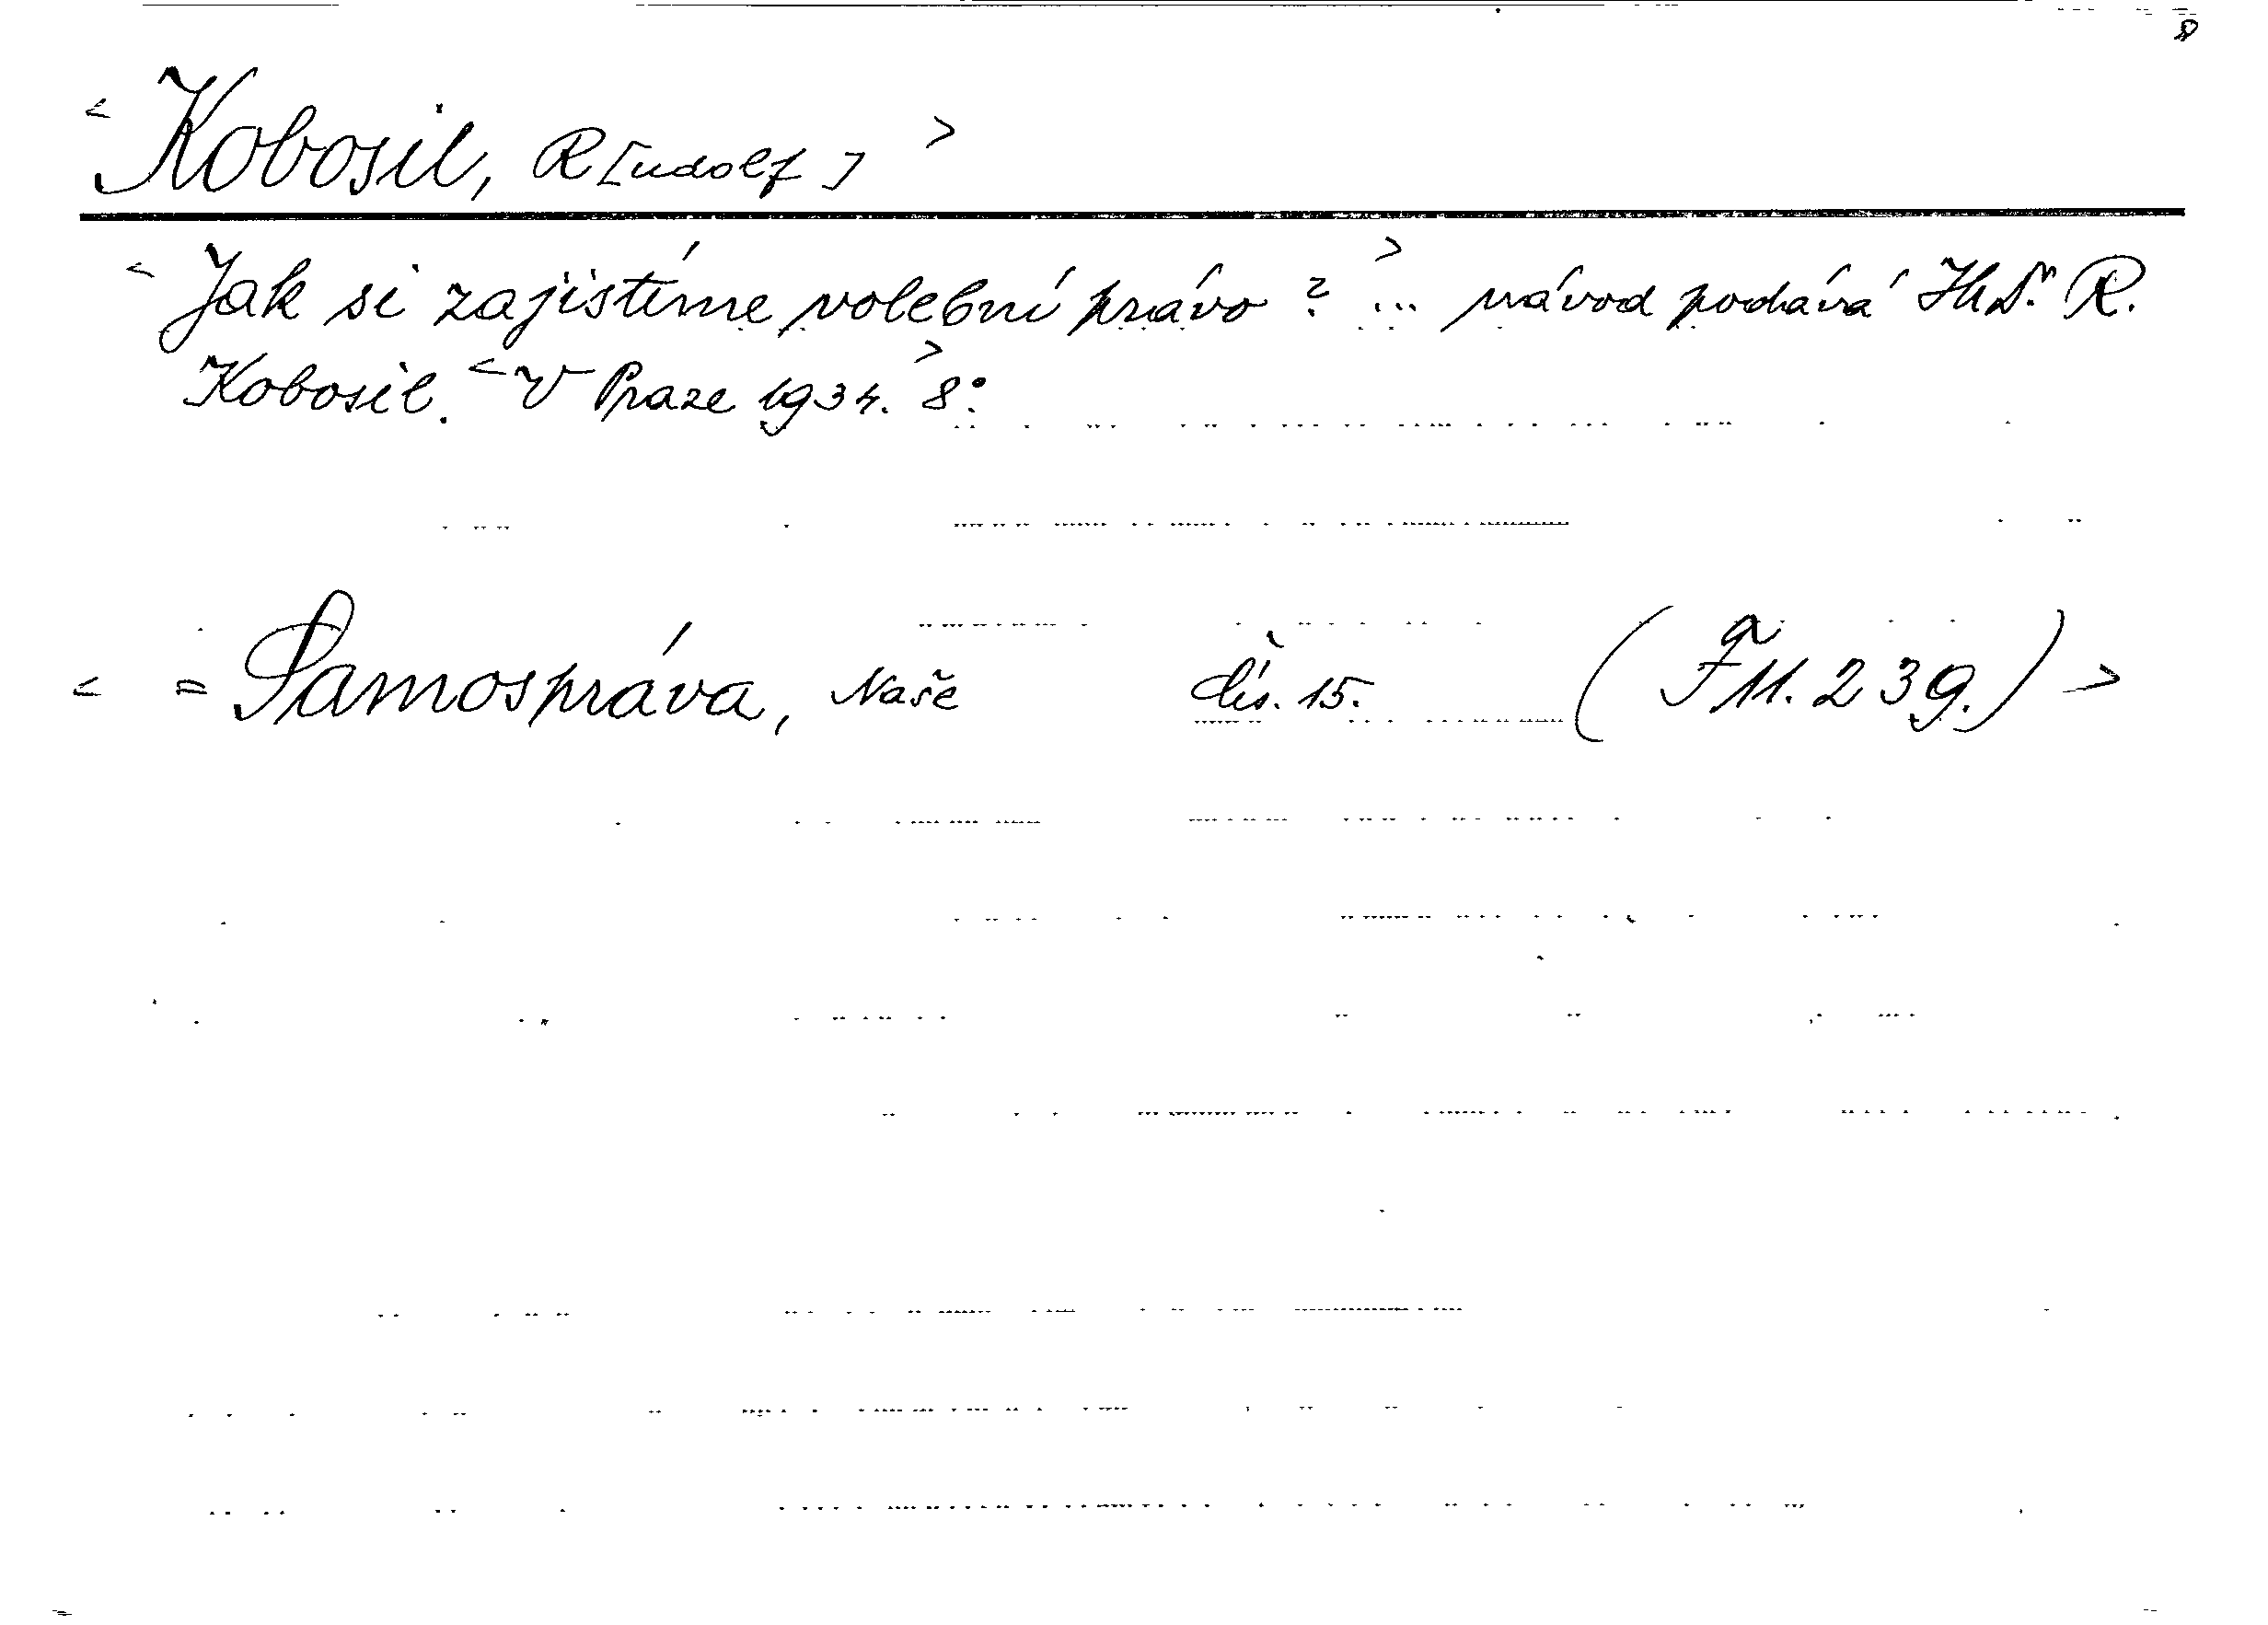 < Kobosil, R[udolf] >
< Jak si zajistíme volební právo? > ... návod podává R.
Kobosil. < V Praze 1934. > 8°.
< = Samospráva, Naše čís. 15. (F 11.239.) >